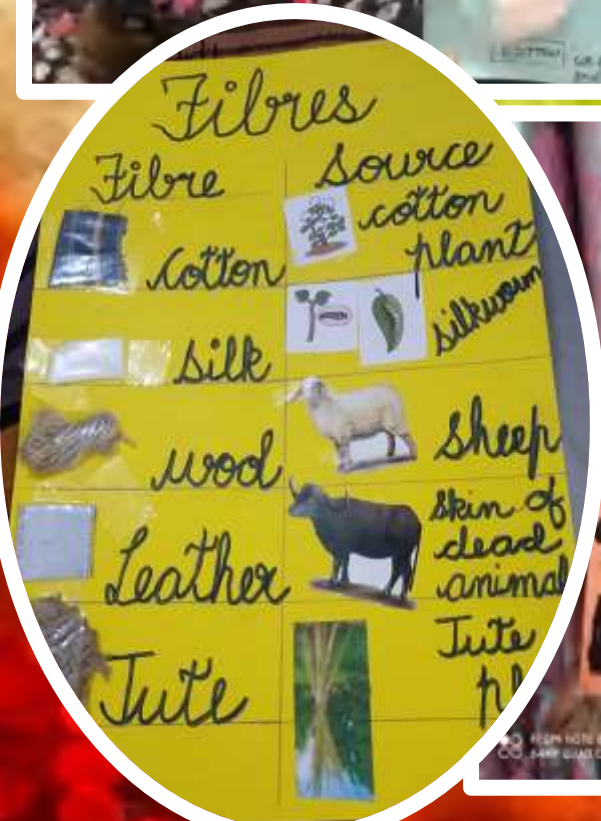 Fibres
Fibre Source
Cotton cotton plant
Silk silkworm
wool sheep
Leather Skin of dead animal
Jute Jute
COTTON